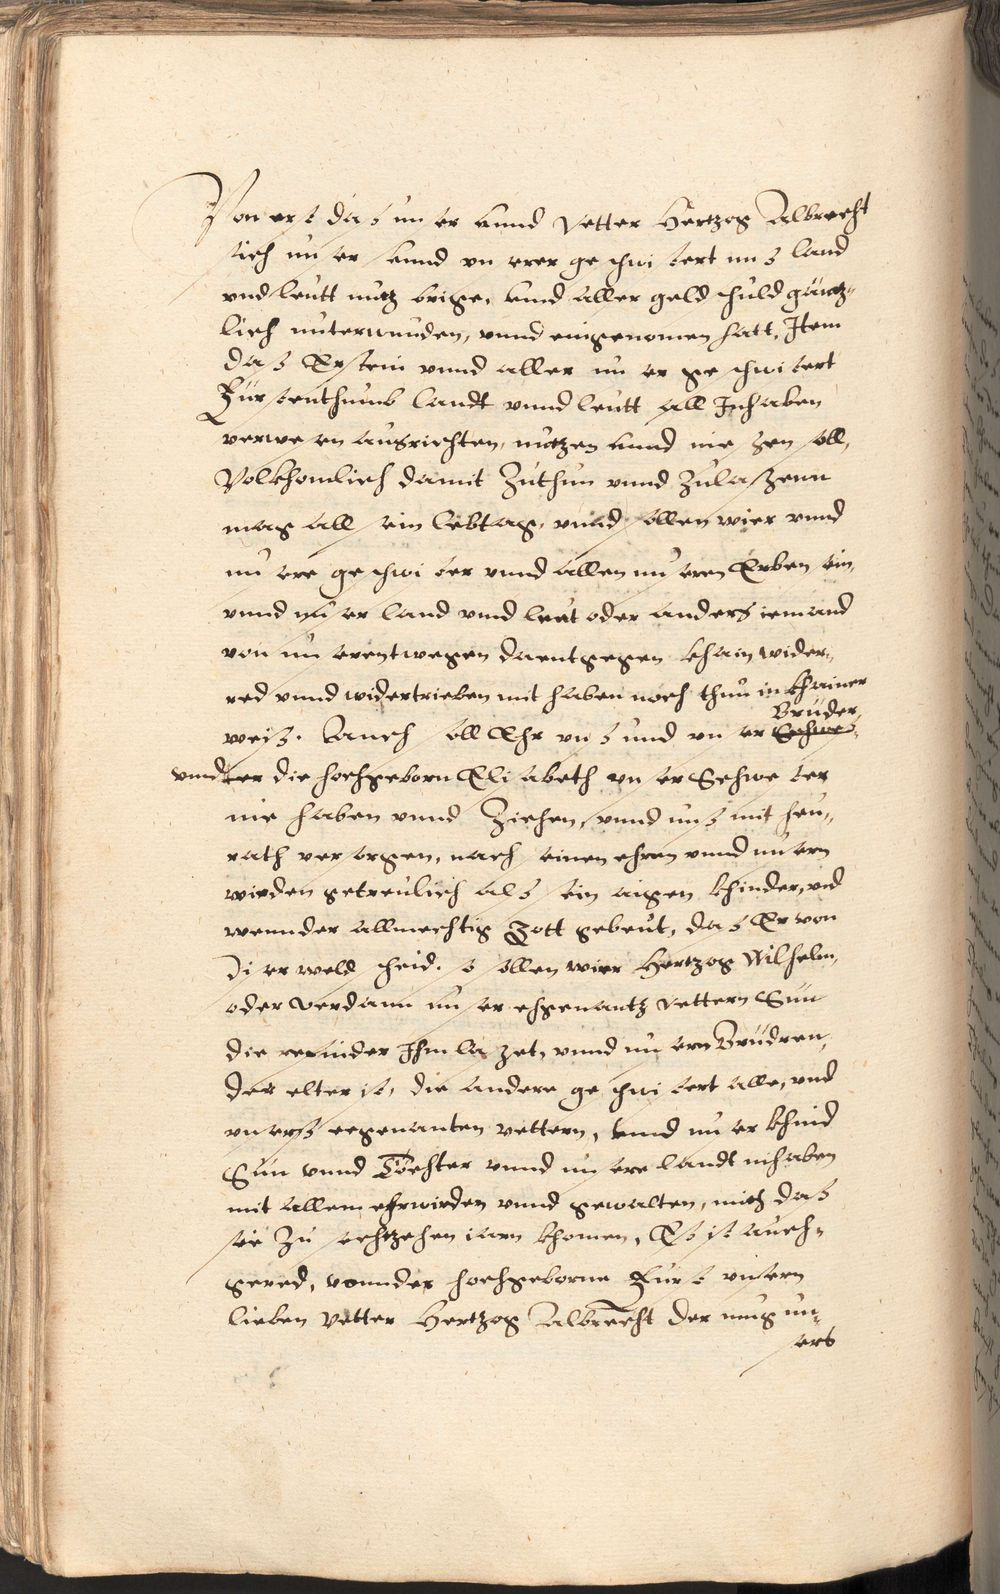 Von erst das unser vnnd Vetter Hertzog Albrecht
sich unser vnnd vnserer geschwistert uns land
vnd leutt nutz brige, vnnd aller geld schuld gäntz-
lich unterwunden, vnnd eingenomen hatt, Item
das Er sein vnnd aller unser geschwistert
Fürstenthumb landt vnnd leutt all Inhaben
verwesen ausrichten, nutzen vnnd niessen soll,
Volkhomlich damit Zuthun vnnd Zulaszenn
mag all sein lebtag, vnnd sollen wier vnnd
unsere geschwister vnnd allen unseren Erben sein,
vnnd unser land vnnd leut oder anders iemand
von unserentwegen daentgegen khain wider-
red vnnd widertrieben mit haben noch thun in khainer
weis. Auch soll Ehr vns vnd vnser Schwes-
Brüder,
vnnd ter die hochgeborn Elisabeth vnser Schwester
nie haben vnnd Ziehen, vnnd uns mit heu-
rath versorgen, nach seinen ehren vnnd unsern
wirden getreulich als sein aigen khinder, vnd
wennder allmechtig Gott gebeut, das Er von
diser weld scheid. so sollen wier Hertzog Wilhelm,
oder Verdann unser ehgenantz Vettern Sün
die er hinder Ihm laszet, vnnd unsern Brüdren,
der elter ist, die andere geschwistert alle, vnd
vnsers eegenanten vettern, vnnd unser khind
Sün vnnd Töchter vnnd unsere landt inhaben
mit allem ehrwirden vnnd gewalten, mitz das
sie Zu sechzehen iarn khomen, Es ist auch-
gered, wannder hochgeborne Fürst vnsern
lieben Vetter Hertzog Albrecht der iung un-
sers